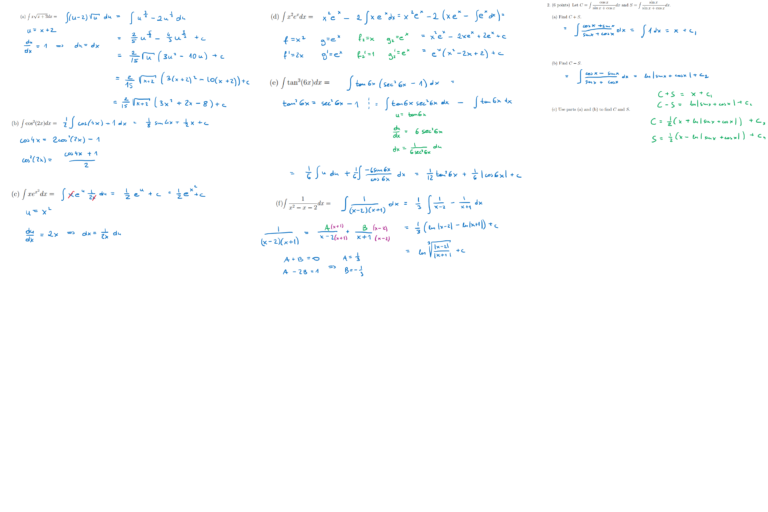 (a) ∫ x√(x+2) dx = ∫(u-2)√u du = ∫ u^(3/2) - 2u^(1/2) du
u = x+2
du/dx = 1 ⇒ du = dx
= 2/5 u^(5/2) - 4/3 u^(3/2) + c
= 2/15 √u (3u² - 10u) + c
= 2/15 √(x+2) (3(x+2)² - 10(x+2)) + c
= 2/15 √(x+2) (3x² + 2x - 8) + c
(b) ∫ cos²(2x)dx = 1/2 ∫ cos(4x) + 1 dx = 1/8 sin 4x + 1/2 x + c
cos 4x = 2cos²(2x) - 1
cos²(2x) = (cos 4x + 1)/2
(c) ∫ xe^(x²) dx = ∫ x e^u 1/(2x) du = 1/2 e^u + c = 1/2 e^(x²) + c
u = x²
du/dx = 2x ⇒ dx = 1/(2x) du
(d) ∫ x²e^x dx = x²e^x - 2 ∫ x e^x dx = x²e^x - 2 (xe^x - ∫e^x dx) =
f = x² g = e^x f₂ = x g₂ = e^x = x²e^x - 2xe^x + 2e^x + c
f' = 2x g' = e^x f₂' = 1 g₂' = e^x = e^x (x² - 2x + 2) + c
(e) ∫ tan³(6x)dx = ∫ tan 6x (sec² 6x - 1) dx =
tan² 6x = sec² 6x - 1 = ∫ tan 6x sec² 6x dx - ∫ tan 6x dx
u = tan 6x
du/dx = 6 sec² 6x
dx = 1/(6 sec² 6x) du
= 1/6 ∫ u du + 1/6 ∫ (-6 sin 6x)/(cos 6x) dx = 1/12 tan² 6x + 1/6 |cos 6x| + c
(f) ∫ 1/(x² - x - 2) dx = ∫ 1/((x-2)(x+1)) dx = 1/3 ∫ 1/(x-2) - 1/(x+1) dx
1/((x-2)(x+1)) = A(x+1)/(x-2)(x+1) + B(x-2)/(x+1)(x-2) = 1/3 (ln|x-2| - ln|x+1|) + c
A + B = 0 A = 1/3 = ln ³√(|x-2|/|x+1|) + c
A - 2B = 1 ⇒ B = -1/3
2. (6 points) Let C = ∫ cos x/(sin x + cos x) dx and S = ∫ sin x/(sin x + cos x) dx
(a) Find C + S.
= ∫ (cos x + sin x)/(sin x + cos x) dx = ∫ 1 dx = x + c₁
(b) Find C - S
= ∫ (cos x - sin x)/(sin x + cos x) dx = ln|sin x + cos x| + c₂
C + S = x + c₁
C - S = ln|sin x + cos x| + c₂
(c) Use parts (a) and (b) to find C and S.
C = 1/2 (x + ln|sin x + cos x|) + c₃
S = 1/2 (x - ln|sin x + cos x|) + c₄